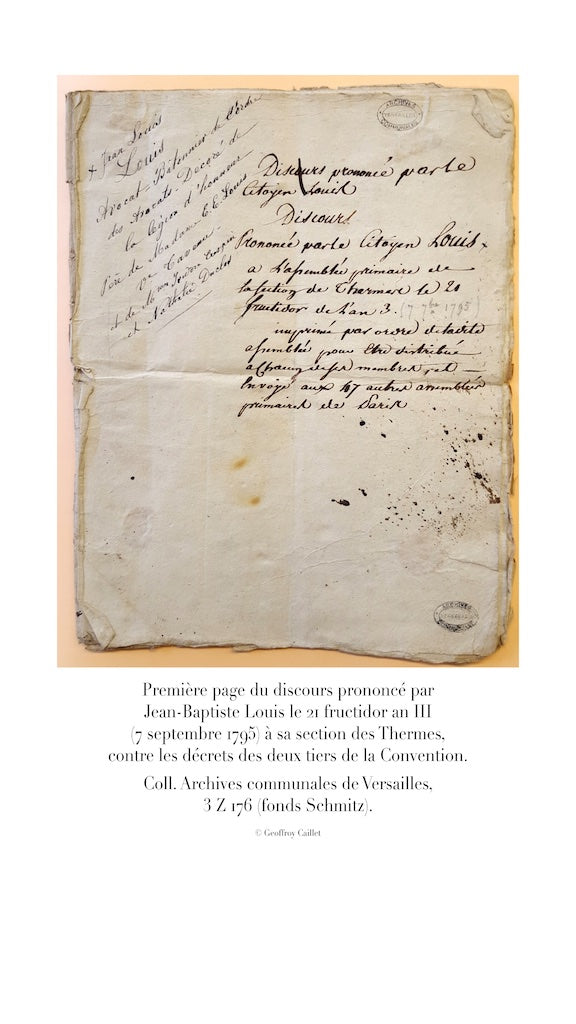 + Jean Louis
Louis
Avocat - Bâtonnier de l'ordre
des Avocats - Décoré de
la légion d'honneur
Père de Madame E. E. Louis
Vve Taveau
et de
et Nathalie Duclos
ARCHIVES
COMMUNALES
Discours prononcé par le
Citoyen Louis
Discours
Prononcée par le Citoyen Louis +
a L'assemblée primaire de
la section de Thermes le 20
fructidor de L'an 3. (7 7bre 1795)
imprimé par ordre de ladite
assemblée pour Etre distribué
a chacun de ses membres, et
Envoyé aux 47 autres assemblées
primaires de Paris
ARCHIVES
COMMUNALES
Première page du discours prononcé par
Jean-Baptiste Louis le 21 fructidor an III
(7 septembre 1795) à sa section des Thermes,
contre les décrets des deux tiers de la Convention.
Coll. Archives communales de Versailles,
3 Z 176 (fonds Schmitz).
© Geoffroy Caillet